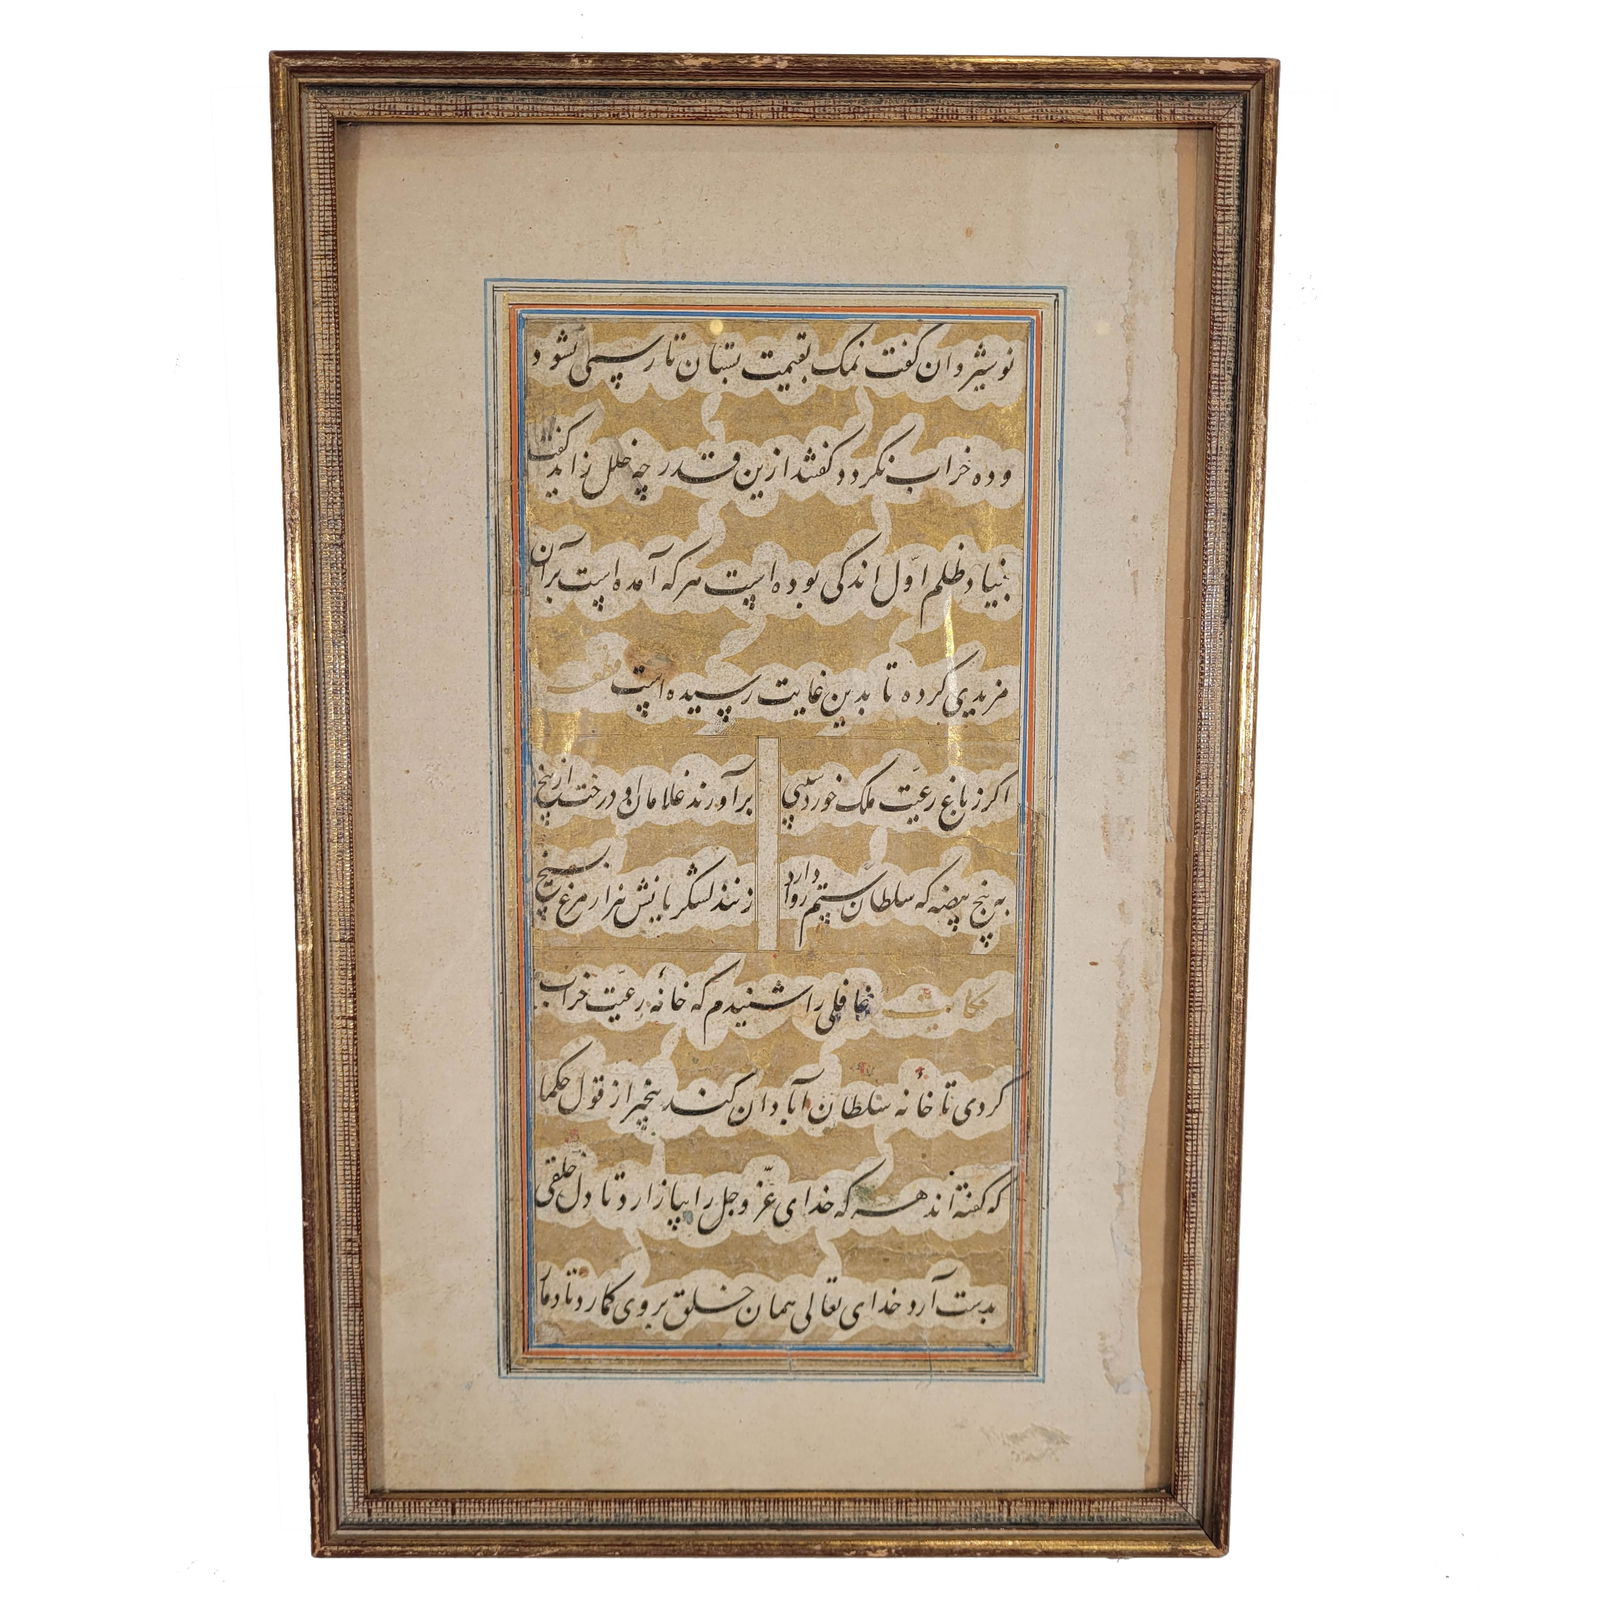 نوشیروان گفت نمک بقیمت بستان تا رسمی نشود
و ده خراب نگردد گفتند ازین قدر چه خلل زاید گفت
بنیاد ظلم اوّل اندکی بوده است هرکه آمده است بران
مزیدی کرده تا بدین غایت رسیده است
اگر ز باغ رعیّت ملک خورد سیبی برآورند غلامان او درخت از بیخ
به پنج بیضه که سلطان ستم روا دارد زنند لشکریانش هزار مرغ بسیخ
حکایت غافلی را شنیدم که خانه رعیّت خراب
کردی تا خانه سلطان آبادان کند بیخبر از قول حکما
که گفته‌اند هر که خدای عزّ و جل را بیازارد تا دل خلقی
بدست آرد خدای تعالی همان خلق بر وی گمارد تا دمار